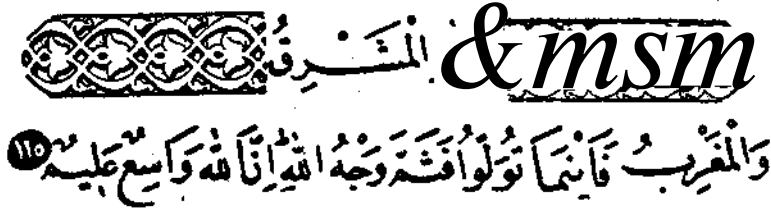 &msm الْمَشْرِقُ
وَالْمَغْرِبُ فَأَيْنَمَا تُوَلُّوا فَثَمَّ وَجْهُ اللَّهِ إِنَّ اللَّهَ وَاسِعٌ عَلِيمٌ ١١٥